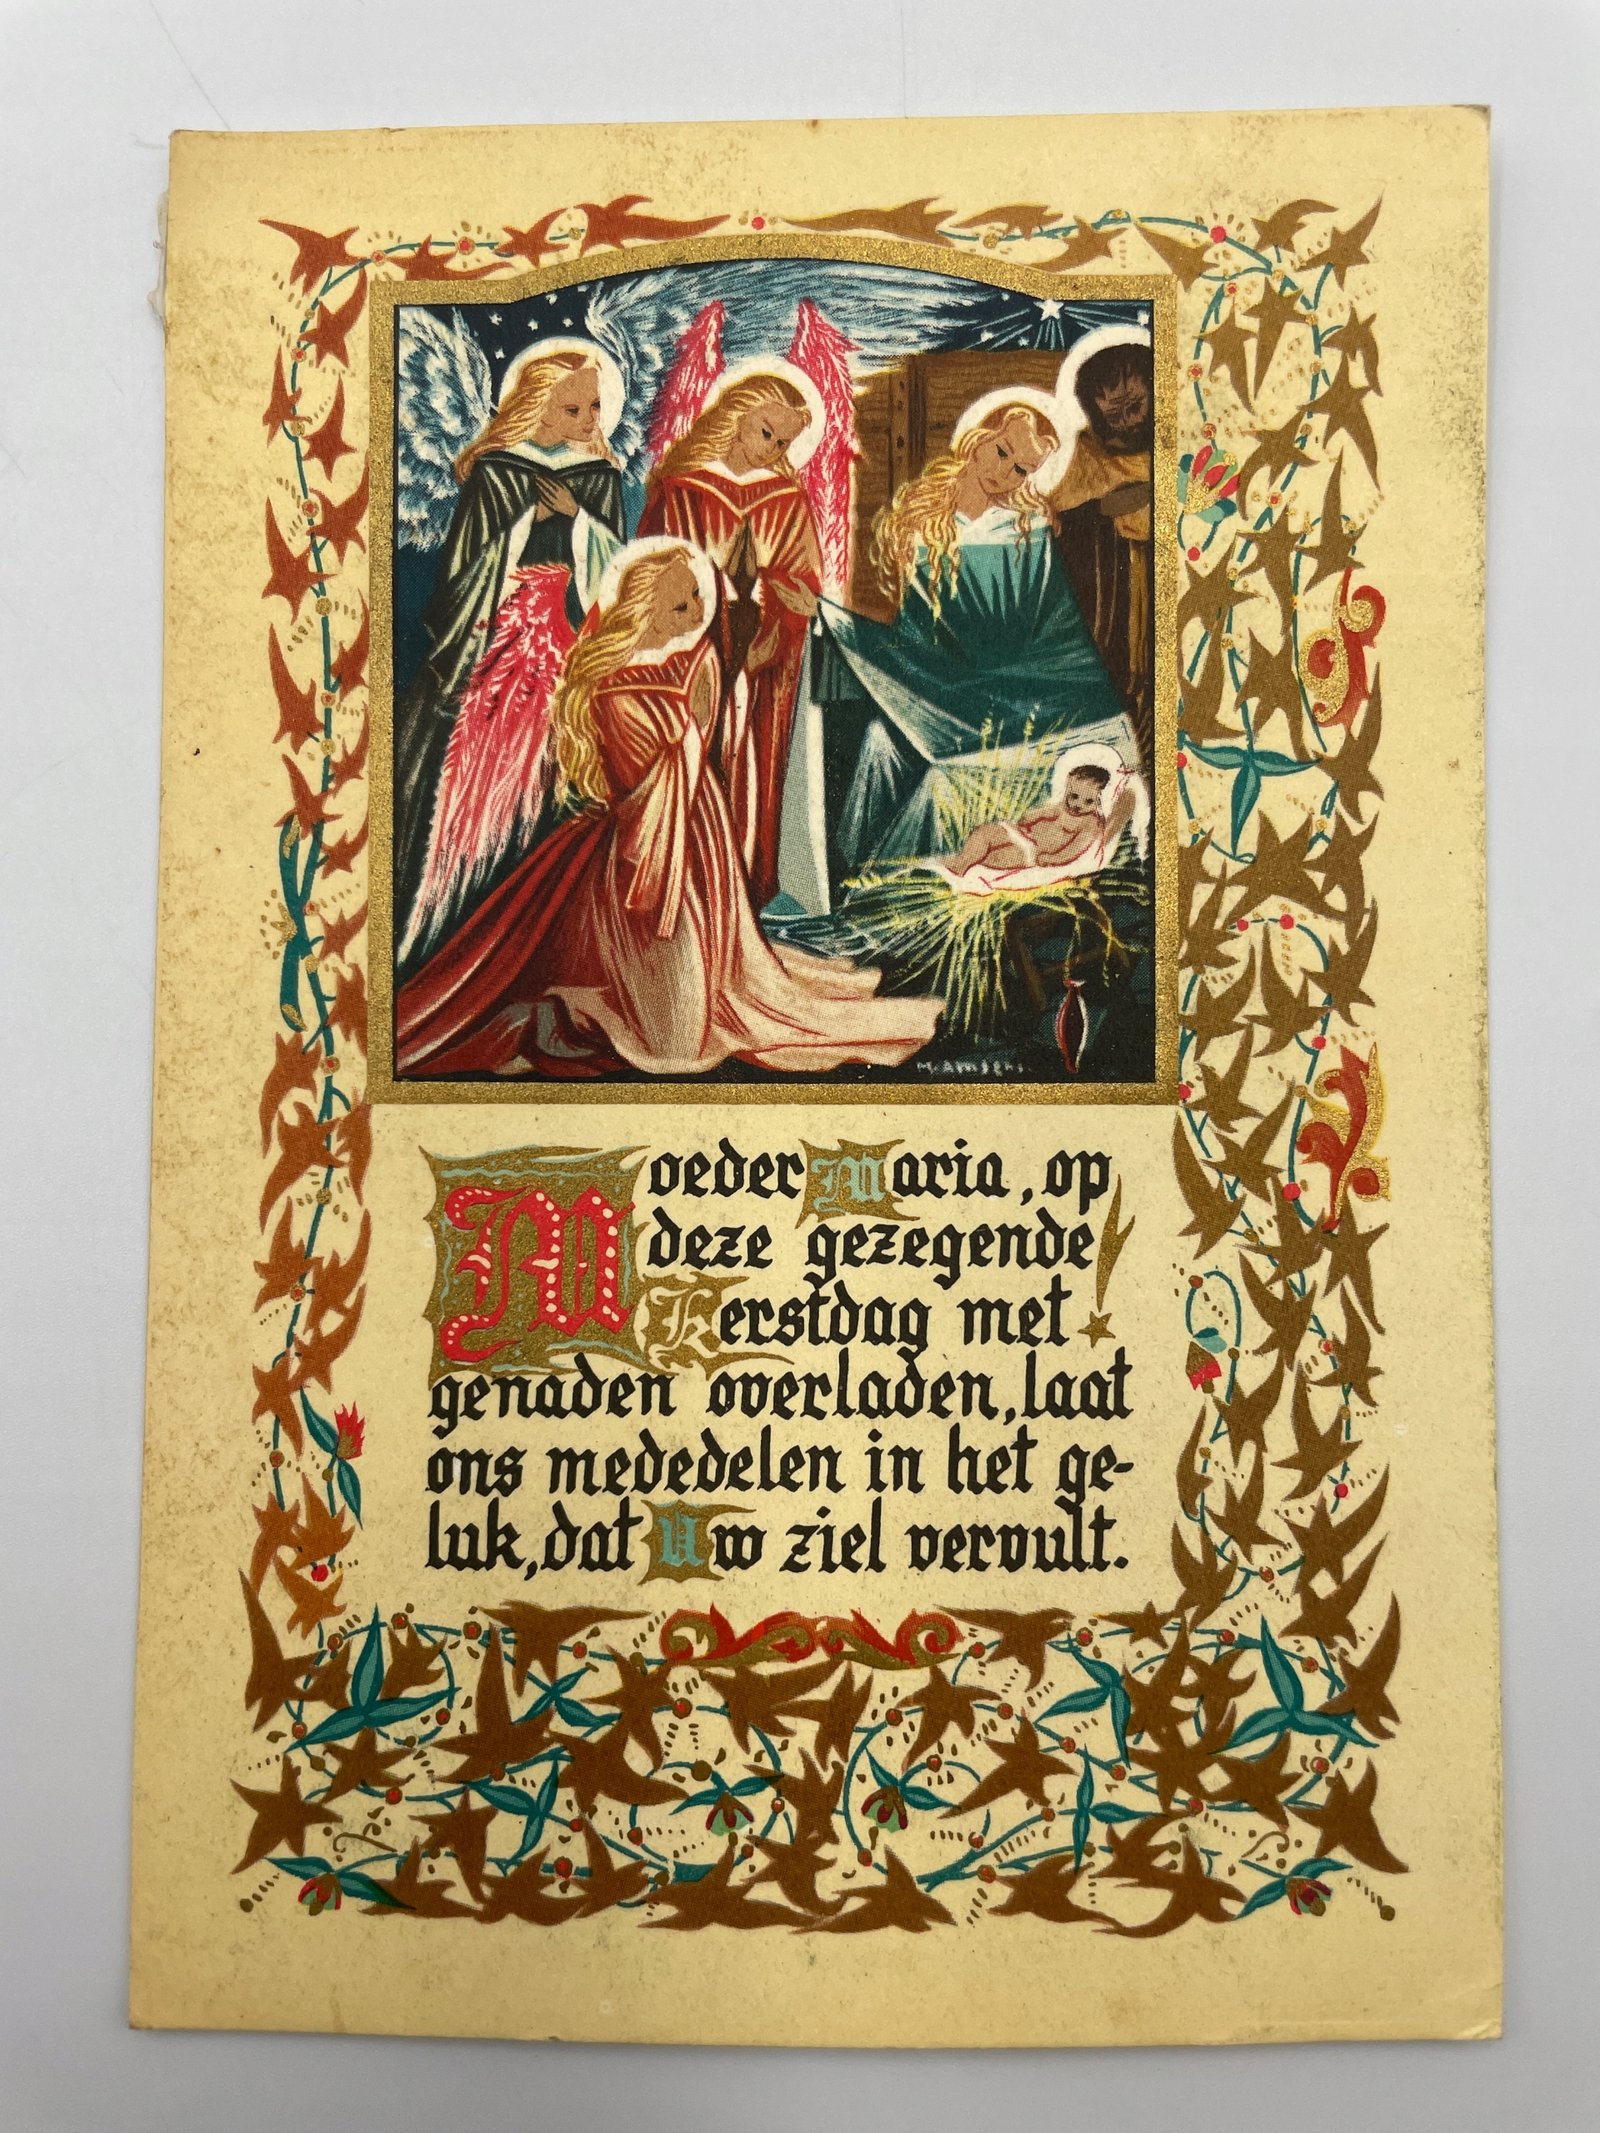 Moeder Maria, op
deze gezegende
Kerstdag met
genaden overladen, laat
ons mededelen in het ge-
luk, dat Uw ziel vervult.